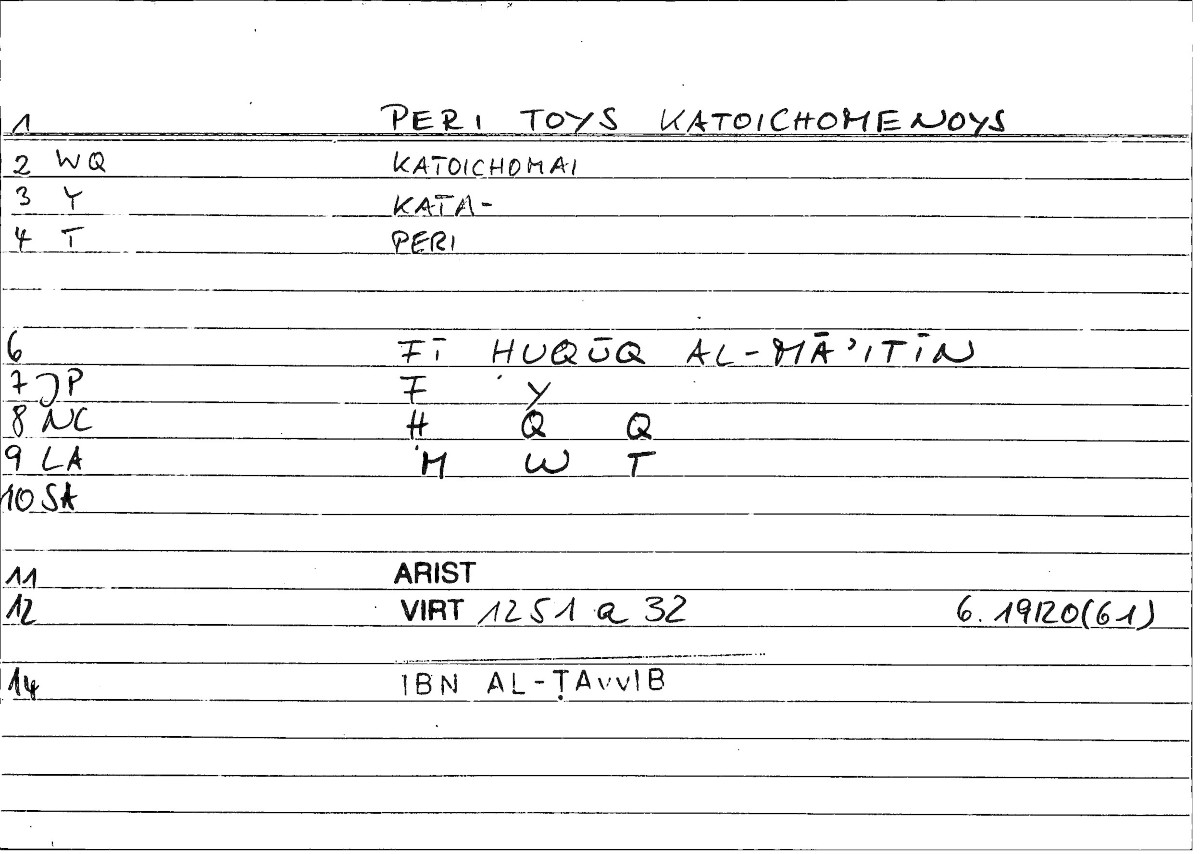 1 PERI TOYS KATOICHOMENOYS
2 WQ KATOICHOMAI
3 Y KATA-
4 T PERI
6 FĪ ḤUQŪQ AL-MĀʾITĪN
7 JP F Y
8 NC Ḥ Q Q
9 LA M W T
10 SA
11 ARIST
12 VIRT 1251 a 32 6. 19/20(61)
14 IBN AL-ṬAYYIB